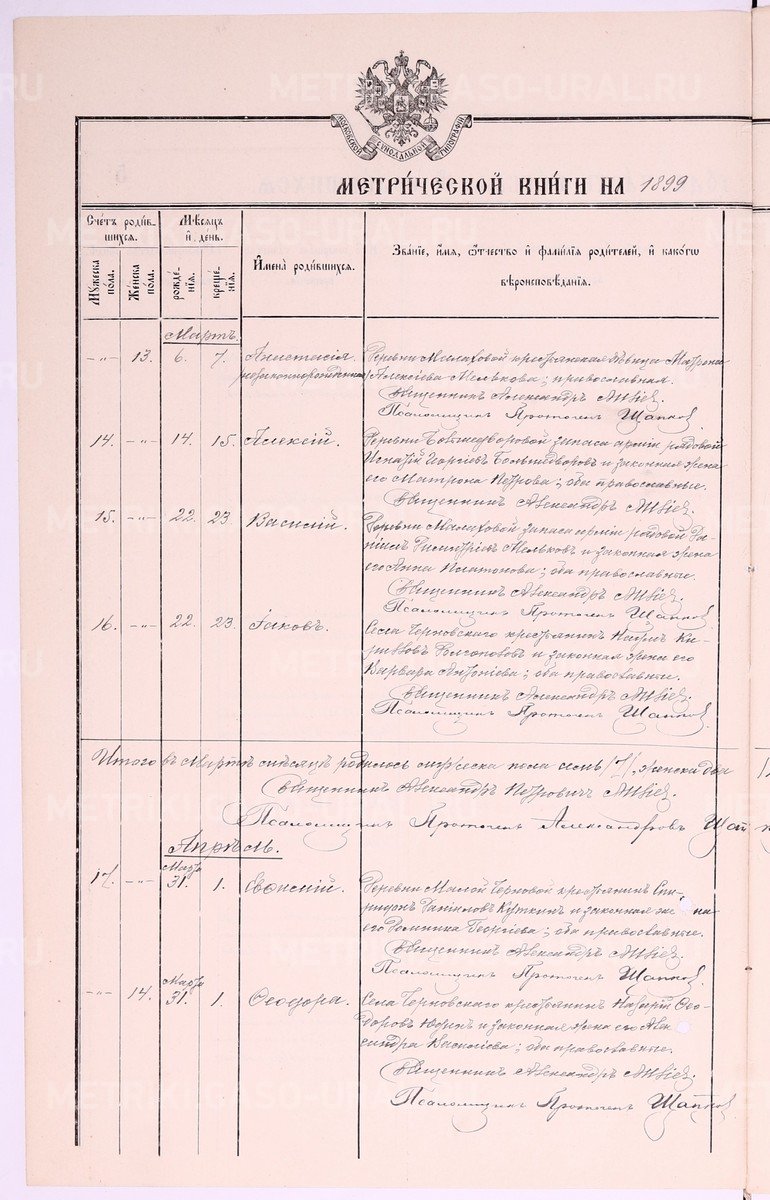 METRICBASD-URAL.RU
МОСКОВСКОЙ СѴНОДАЛЬНОЙ ТИПОГРАФІИ
МЕТРИ́ЧЕСКОЙ КНИ́ГИ НА 1899
Сче́тъ роди́в-
шихся.
Мѣ́сяцъ
и҆ де́нь.
Мꙋ́жеска
по́ла.
Же́нска
по́ла.
рожде́-
нїя.
креще́-
нїя.
И҆мена̀ роди́вшихся.
Зва́нїе, и҆́мя, ѻ҆́тчество и҆ фами́лїя роди́телей, и҆ како́гѡ
вѣроисповѣ́данїя.
Мартъ
-"- 13. 6. 7. Анастасія
незаконнорожденная
Деревни Малаховой крестьянская дѣвица Матрона
Алексіева Мелькова; православная.
Священникъ Александръ
Псаломщикъ
14. -"- 14. 15. Алексій.
Деревни запаса арміи рядовой
Игнатій Георгіевъ и законная жена
его Матрона Петрова; оба православные.
Священникъ Александръ
15. -"- 22. 23 Василій.
Деревни Малаховой запаса арміи рядовой Да-
ніилъ Димитріевъ Мельковъ и законная жена
его Анна Платонова; оба православные.
Священникъ Александръ
Псаломщикъ
16. -"- 22. 23. Іаковъ.
Села Черновскаго крестьянинъ
и законная жена его
Варвара Антоніева; оба православные.
Священникъ Александръ
Псаломщикъ
Итого въ Мартѣ мѣсяцѣ родилось мужеска пола семь /7/, женска два
Священникъ Александръ Петровичъ
Псаломщикъ Александровъ
Апрѣль.
17. -"- Марта 31. 1. Евѳимій.
Деревни Малой Черновой крестьянинъ Спи-
ридонъ Даніиловъ Куткинъ и законная жена
его Домника Георгіева; оба православные.
Священникъ Александръ
Псаломщикъ
-"- 14. Марта 31. 1. Ѳеодора.
Села Черновскаго крестьянинъ Назарій Ѳео-
доровъ и законная жена его Алек-
сандра Василіева; оба православные.
Священникъ Александръ
Псаломщикъ